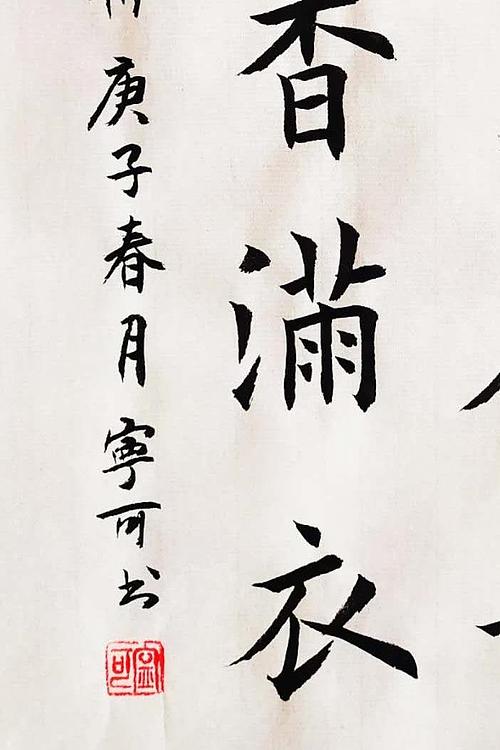 香滿衣
庚子春月寧可书
寧可